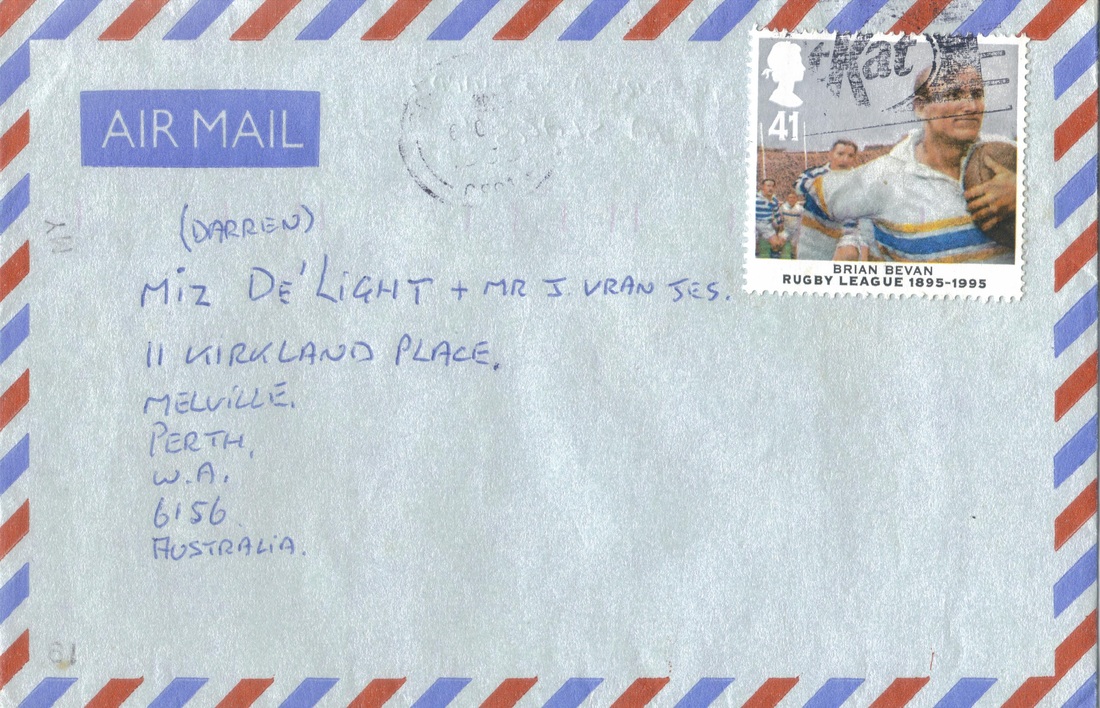 AIR MAIL
Kat
41
BRIAN BEVAN
RUGBY LEAGUE 1895-1995
(DARREN)
MIZ DE'LIGHT + MR J. VRANJES.
11 KIRKLAND PLACE,
MELVILLE.
PERTH,
W.A.
6156
AUSTRALIA.